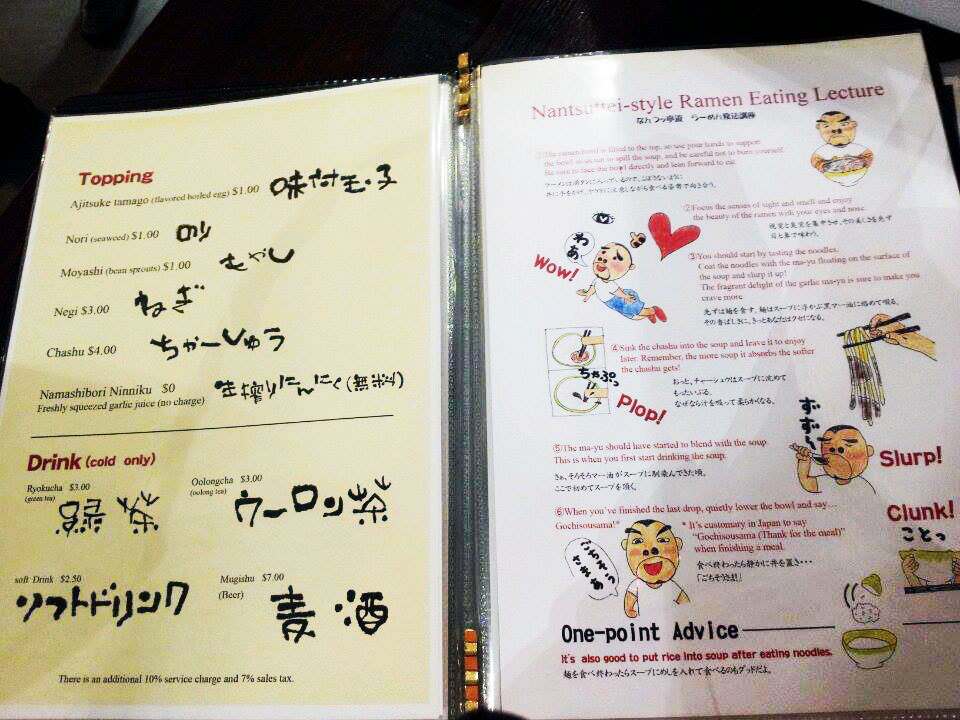 Topping
Ajitsuke tamago (flavored boiled egg) $1.00 味付玉子
Nori (seaweed) $1.00 のり
Moyashi (bean sprouts) $1.00 もやし
Negi $3.00 ねぎ
Chashu $4.00 ちゃーしゅう
Namashibori Ninniku $0 生搾りにんにく(無料)
Freshly squeezed garlic juice (no charge)
Drink (cold only)
Ryokucha $3.00
(green tea)
緑茶
Oolongcha $3.00
(oolong tea)
ウーロン茶
soft Drink $2.50
ソフトドリンク
Mugishu $7.00
(Beer)
麦酒
There is an additional 10% service charge and 7% sales tax.
Nantsuttei-style Ramen Eating Lecture
なんつッ亭流 らーめん食法講座
①The ramen bowl is filled to the top, so use your hands to support
the bowl so as not to spill the soup, and be careful not to burn yourself.
Be sure to face the bowl directly and lean forward to eat.
②Focus the senses of sight and smell and enjoy
the beauty of the ramen with your eyes and nose.
視覚と臭覚を集中させ、その美しさを先ず
目と鼻で味わう。
わあ
Wow!
③You should start by tasting the noodles.
Coat the noodles with the ma-yu floating on the surface of
the soup and slurp it up!
The fragrant delight of the garlic ma-yu is sure to make you
crave more.
先ずは麺を食す。麺はスープに浮かぶ黒マー油に絡めて啜る。
その香ばしさに、きっとあなたはクセになる。
④Sink the chashu into the soup and leave it to enjoy
later. Remember, the more soup it absorbs the softer
the chashu gets!
おっと、チャーシュウはスープに沈めて
もったいぶる。
なぜなら汁を吸って柔らかくなる。
ちゃぷっ
Plop!
⑤The ma-yu should have started to blend with the soup.
This is when you first start drinking the soup.
さぁ、そろそろマー油がスープに馴染んできた頃。
ここで初めてスープを頂く。
ずずー
Slurp!
⑥When you've finished the last drop, quietly lower the bowl and say…
Gochisousama!*
* It's customary in Japan to say
"Gochisousama (Thank for the meal)"
when finishing a meal.
食べ終わったら静かに丼を置き・・・
「ごちそうさま!」
ごちそうさまあ
Clunk!
ことっ
One-point Advice
It's also good to put rice into soup after eating noodles.
麺を食べ終わったらスープにめしを入れて食べるのもグッドだよ。